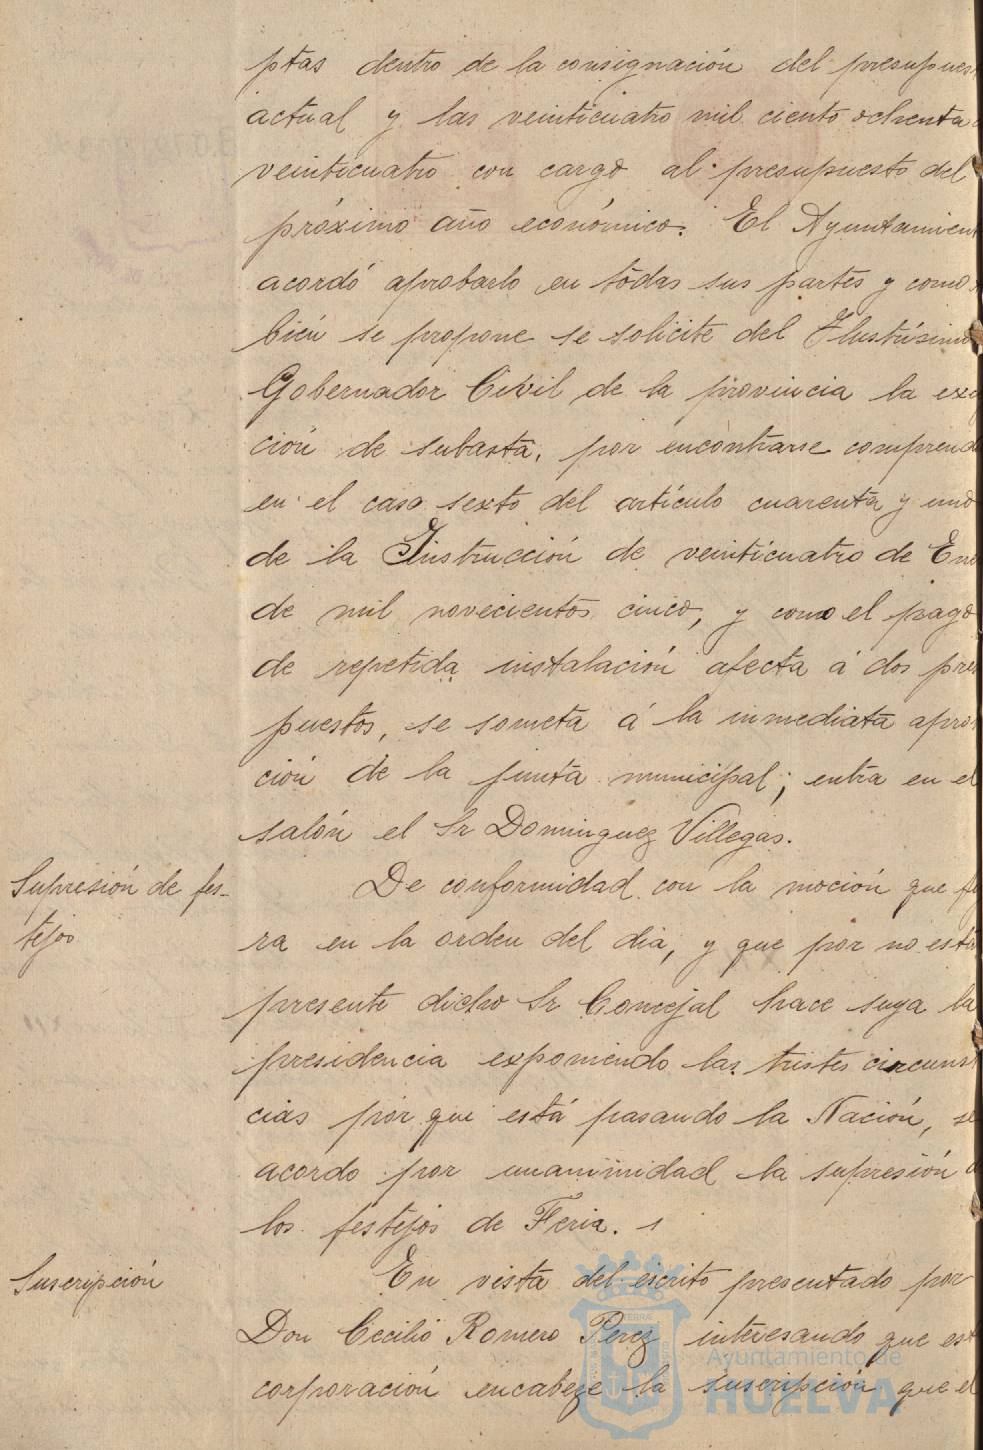 ptas dentro de la consignación del presupues
actual y las veinticuatro mil ciento ochenta
veinticuatro con cargo al presupuesto del
próximo año económico. El Ayuntamient
acordó aprobarlo en todas sus partes y como
bién se propone se solicite del Ilustrísimo
Gobernador Civil de la provincia la exc
ción de subasta, por encontrarse comprend
en el caso sexto del artículo cuarenta y uno
de la Instrucción de veinticuatro de Ene
de mil novecientos cinco, y como el pago
de repetida instalación afecta á dos pres
puestos, se someta á la inmediata apro
ción de la junta municipal; entra en el
salón el Sr Dominguez Villegas.
Supresión de fes-
tejos
De conformidad con la moción que fi
ra en la orden del dia, y que por no estar
presente dicho Sr Concejal hace suya la
presidencia exponiendo las tristes circunst
cias por que está pasando la Nación, se
acordo por unanimidad la supresión d
los festejos de Feria.
Suscripción
En vista del escrito presentado por
Don Cecilio Romero Perez interesando que est
corporación encabeze la suscripción que el
Ayuntamiento de
HUELVA